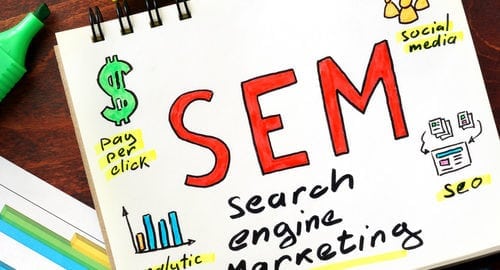 social
media
$
pay
per
click
SEM
SEO
Search
engine
Marketing
analytic